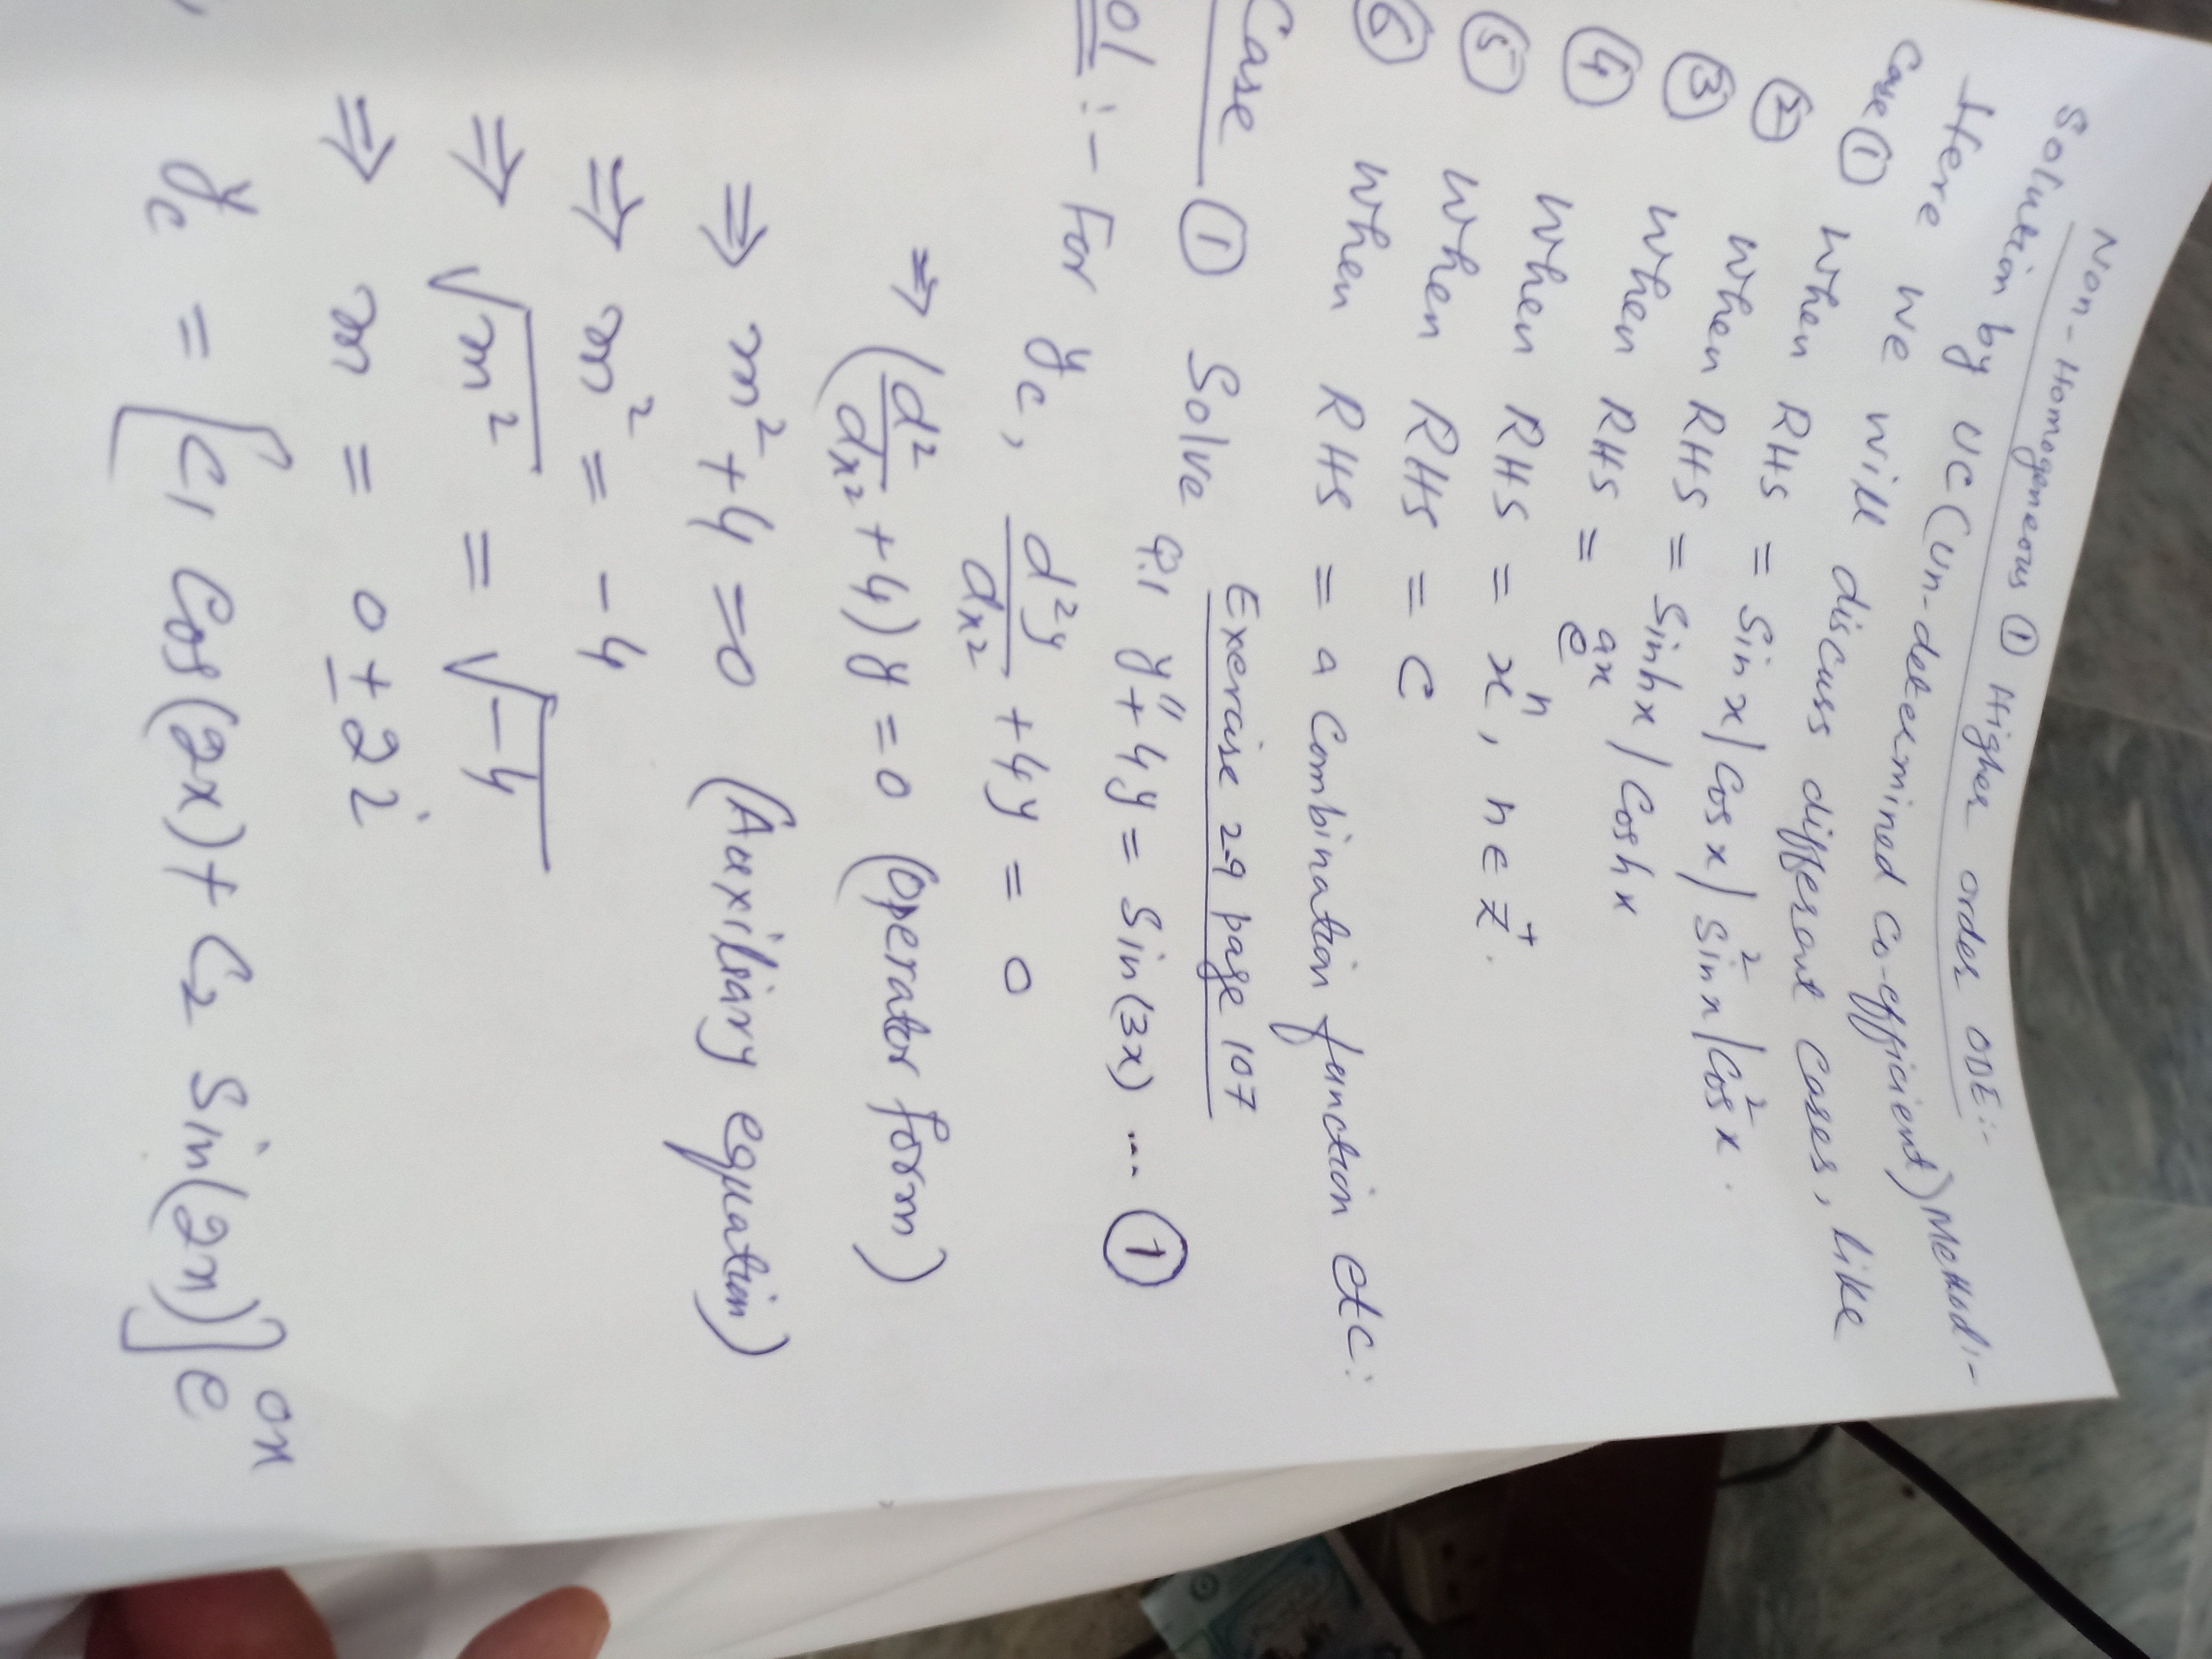 Non-Homogeneous ① Higher order ODE:-
Solution by UC (Un-determined Co-efficient) Method:-
Here we will discuss different cases, like
Case ① when RHS = Sin x / Cos x / Sin²x / Cos²x.
② when RHS = Sinhx / Coshx
③ when RHS = e^ax
④ when RHS = x^n, n ∈ Z⁺.
⑤ when RHS = C
⑥ when RHS = a Combination function etc:
Exercise 2.9 page 107
Case ① Solve Q.1 y″ + 4y = Sin(3x) ... ①
ol :- For y_c, d²y/dx² + 4y = 0
⇒ (d²/dx² + 4) y = 0 (Operator form)
⇒ m² + 4 = 0 (Auxiliary equation)
⇒ m² = -4
⇒ √m² = √-4
⇒ m = 0 ± 2i
y_c = [C₁ Cos(2x) + C₂ Sin(2x)] e^ox